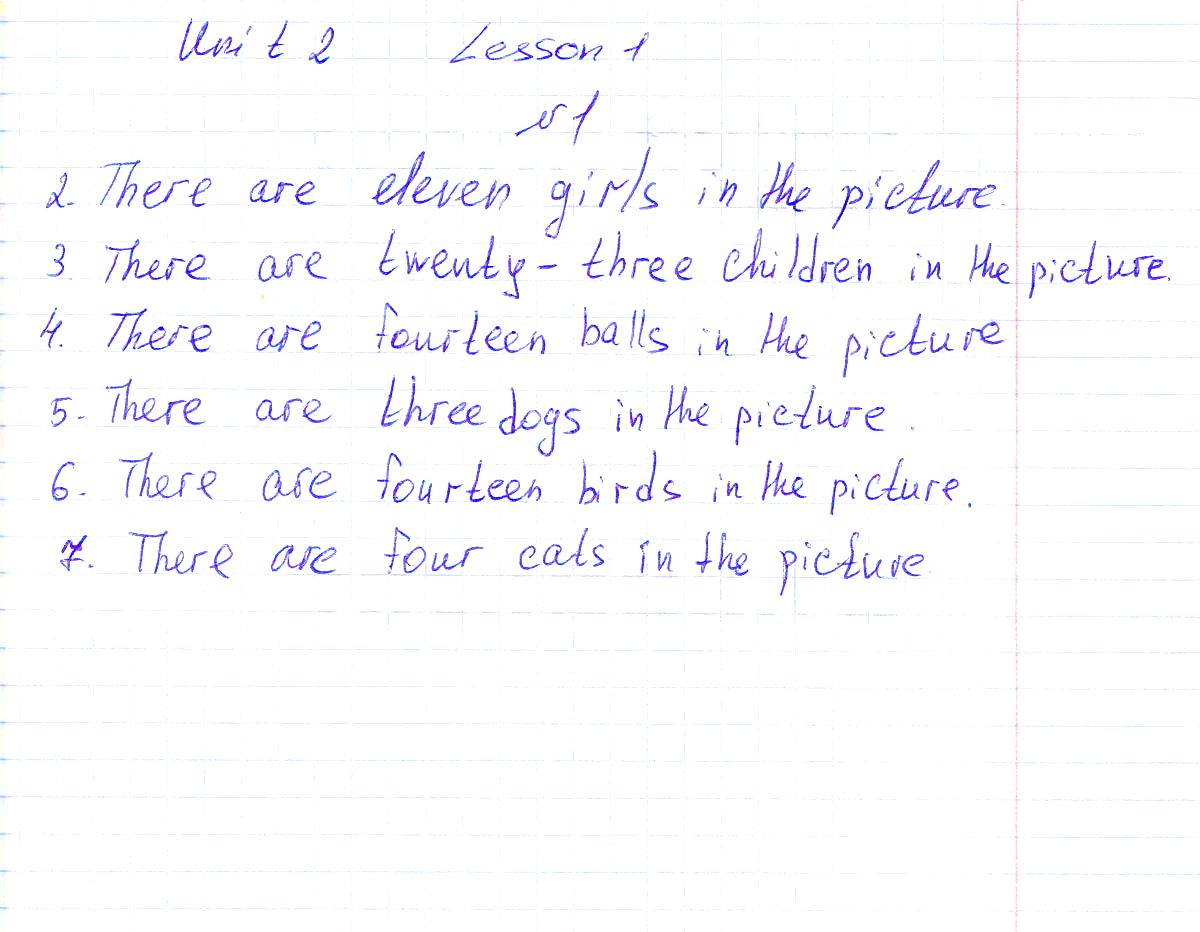 Unit 2 Lesson 1
№1
2. There are eleven girls in the picture.
3. There are twenty-three children in the picture.
4. There are fourteen balls in the picture
5. There are three dogs in the picture.
6. There are fourteen birds in the picture.
7. There are four cats in the picture